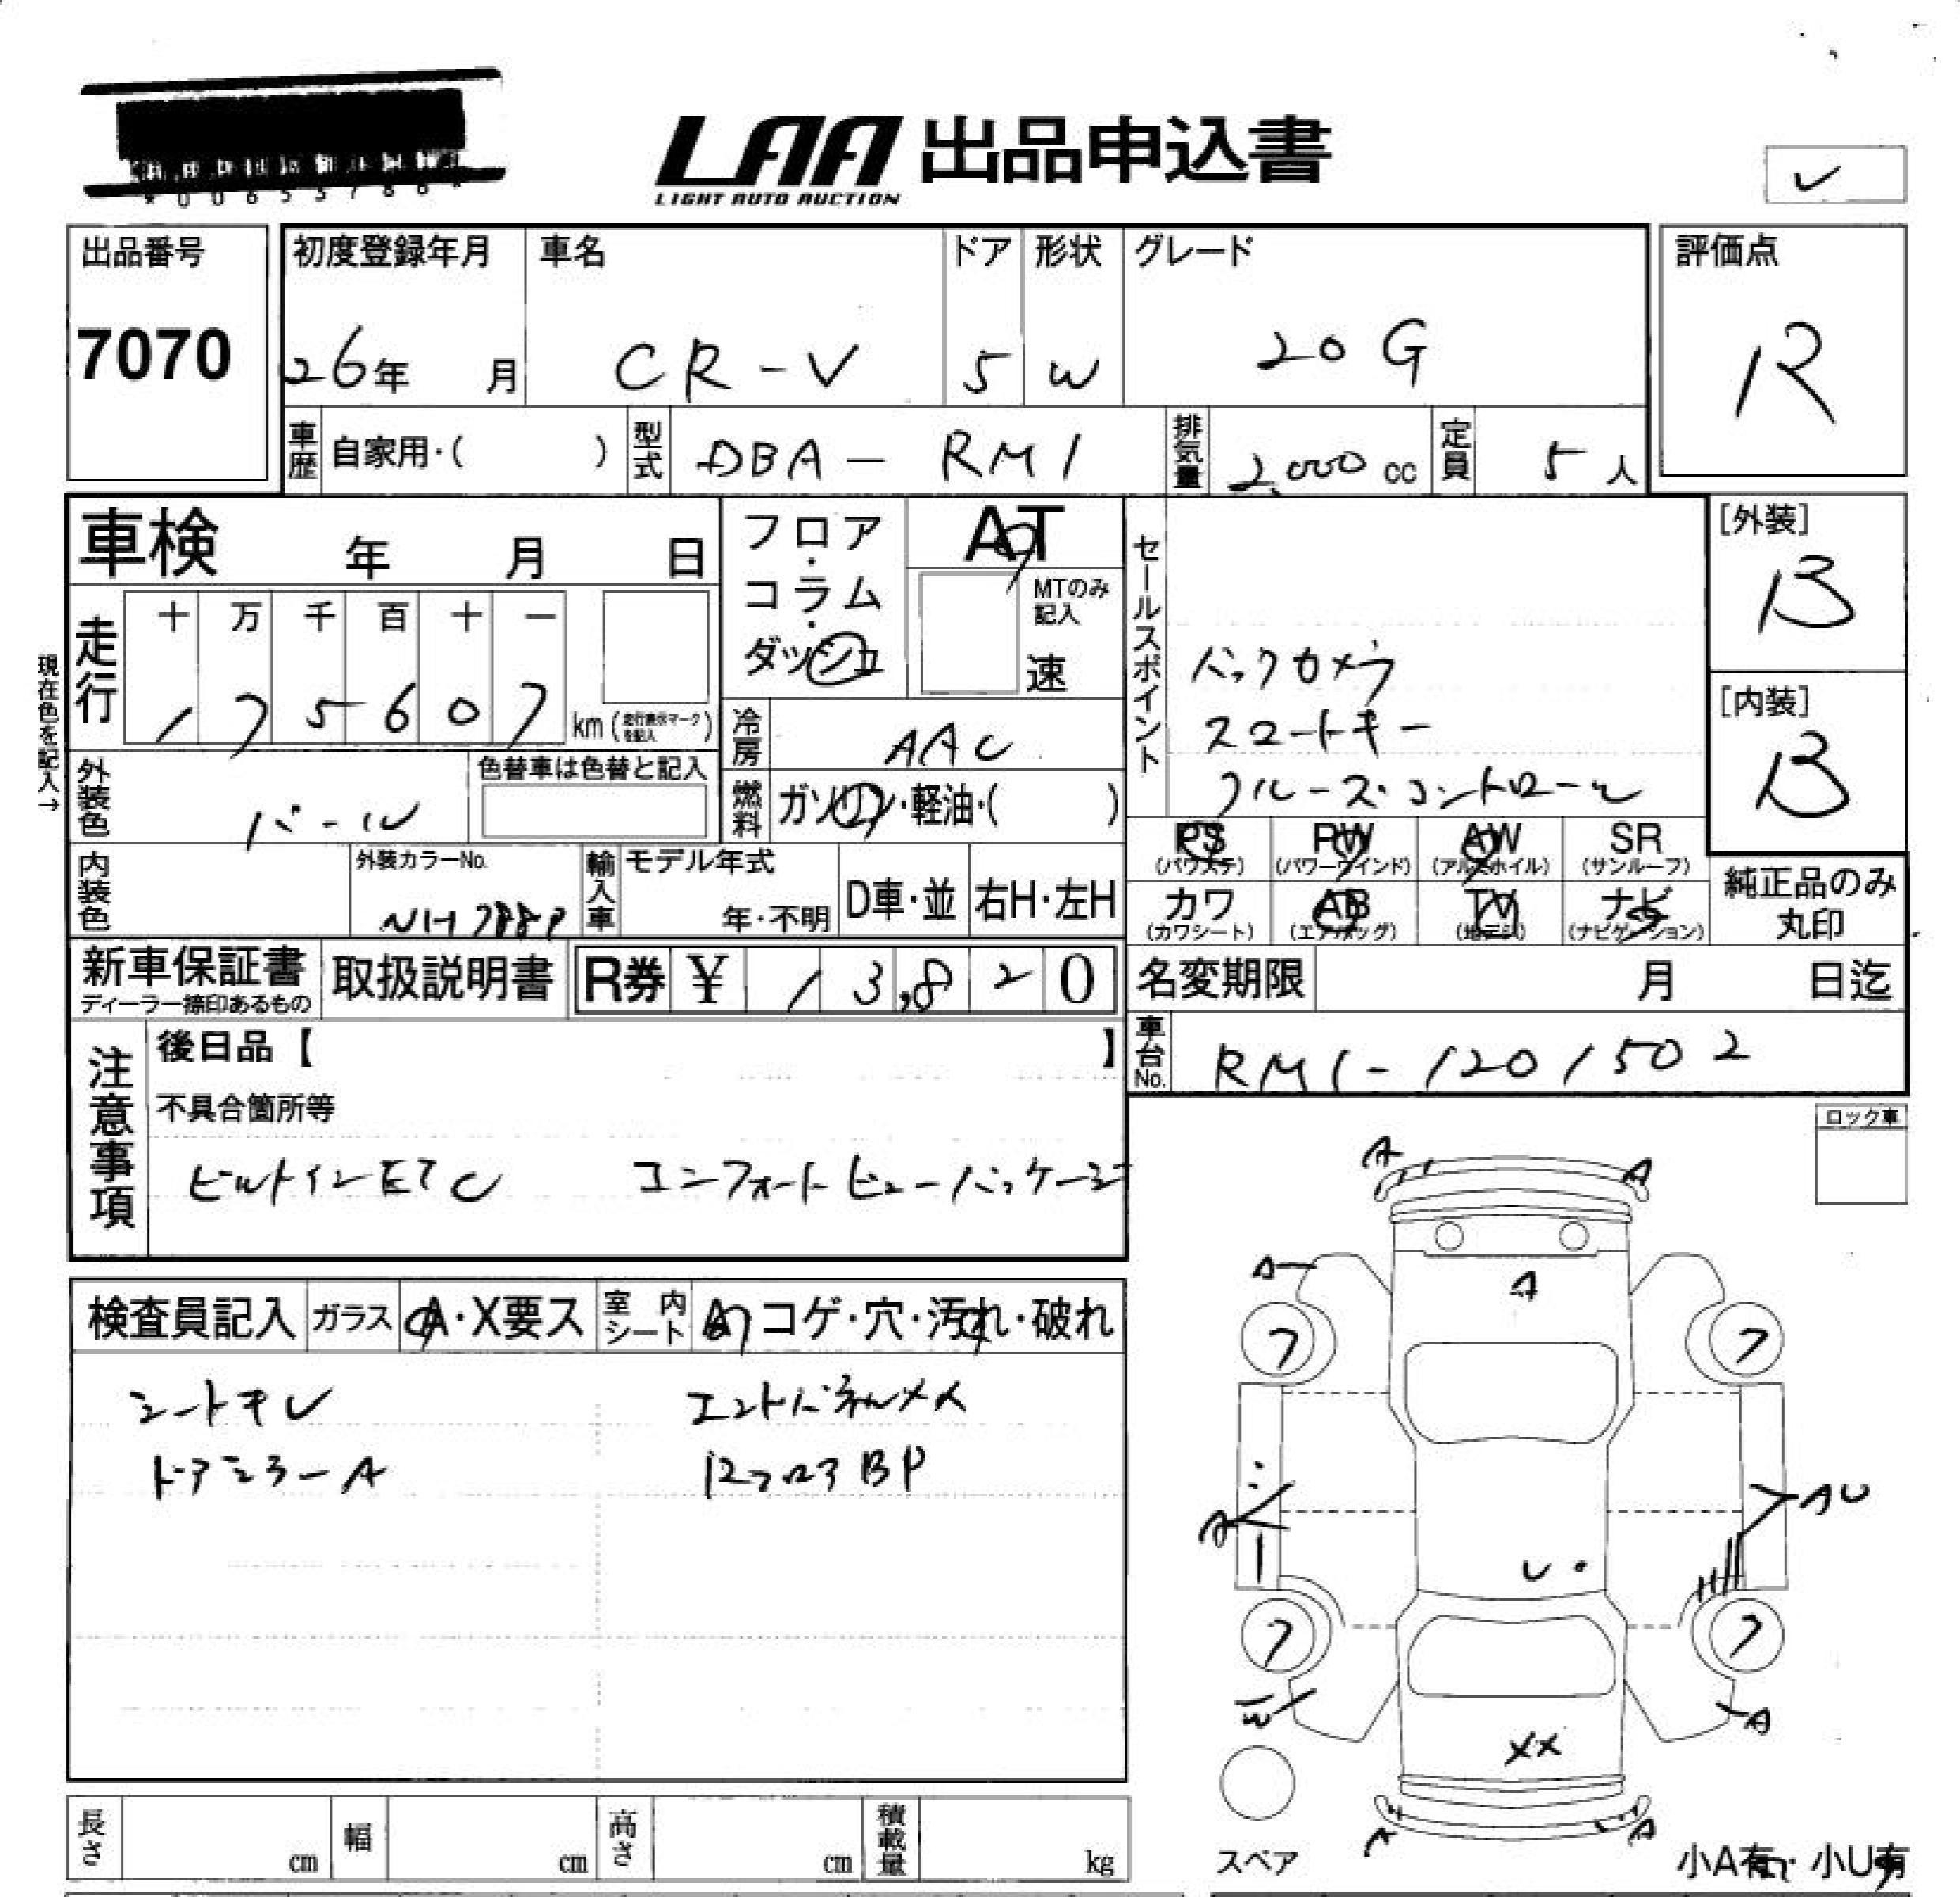 LAA 出品申込書
LIGHT AUTO AUCTION
出品番号
7070
初度登録年月
26年 月
車名
CR-V
ドア
5
形状
W
グレード
20G
評価点
R
車歴 自家用・( )
型式 DBA-RM1
排気量 2,000 cc
定員 5人
車検 年 月 日
フロア・コラム・ダッシュ
AT
MTのみ記入
速
セールスポイント
バックカメラ
スマートキー
クルーズコントロール
[外装]
B
[内装]
B
現在色を記入→
走行
十 万 千 百 十 一
1 7 5 6 0 7 km (走行表示マークを記入)
冷房 AAC
外装色 パール
色替車は色替と記入
燃料 ガソリン・軽油・( )
PS (パワステ)
PW (パワーウインド)
AW (アルミホイル)
SR (サンルーフ)
内装色
外装カラーNo.
NH788P
輸入車
モデル年式
年・不明
D車・並
右H・左H
カワ (カワシート)
AB (エアバッグ)
TV (地デジ)
ナビ (ナビゲーション)
純正品のみ丸印
新車保証書
ディーラー捺印あるもの
取扱説明書
R券 ¥ 13,820
名変期限 月 日迄
車台No. RM1-1201502
注意事項
後日品【 】
不具合箇所等
ビルトインETC コンフォートビューパッケージ
ロック車
検査員記入
ガラス A・X要ス
室内シート コゲ・穴・汚れ・破れ
シートキレ エンドパネルXX
ドアミラーA RフロアBP
A A
A A
7 7
A AU
U・
7 7
W A
XX
A A
スペア
小A有・小U有
長さ cm
幅 cm
高さ cm
積載量 kg